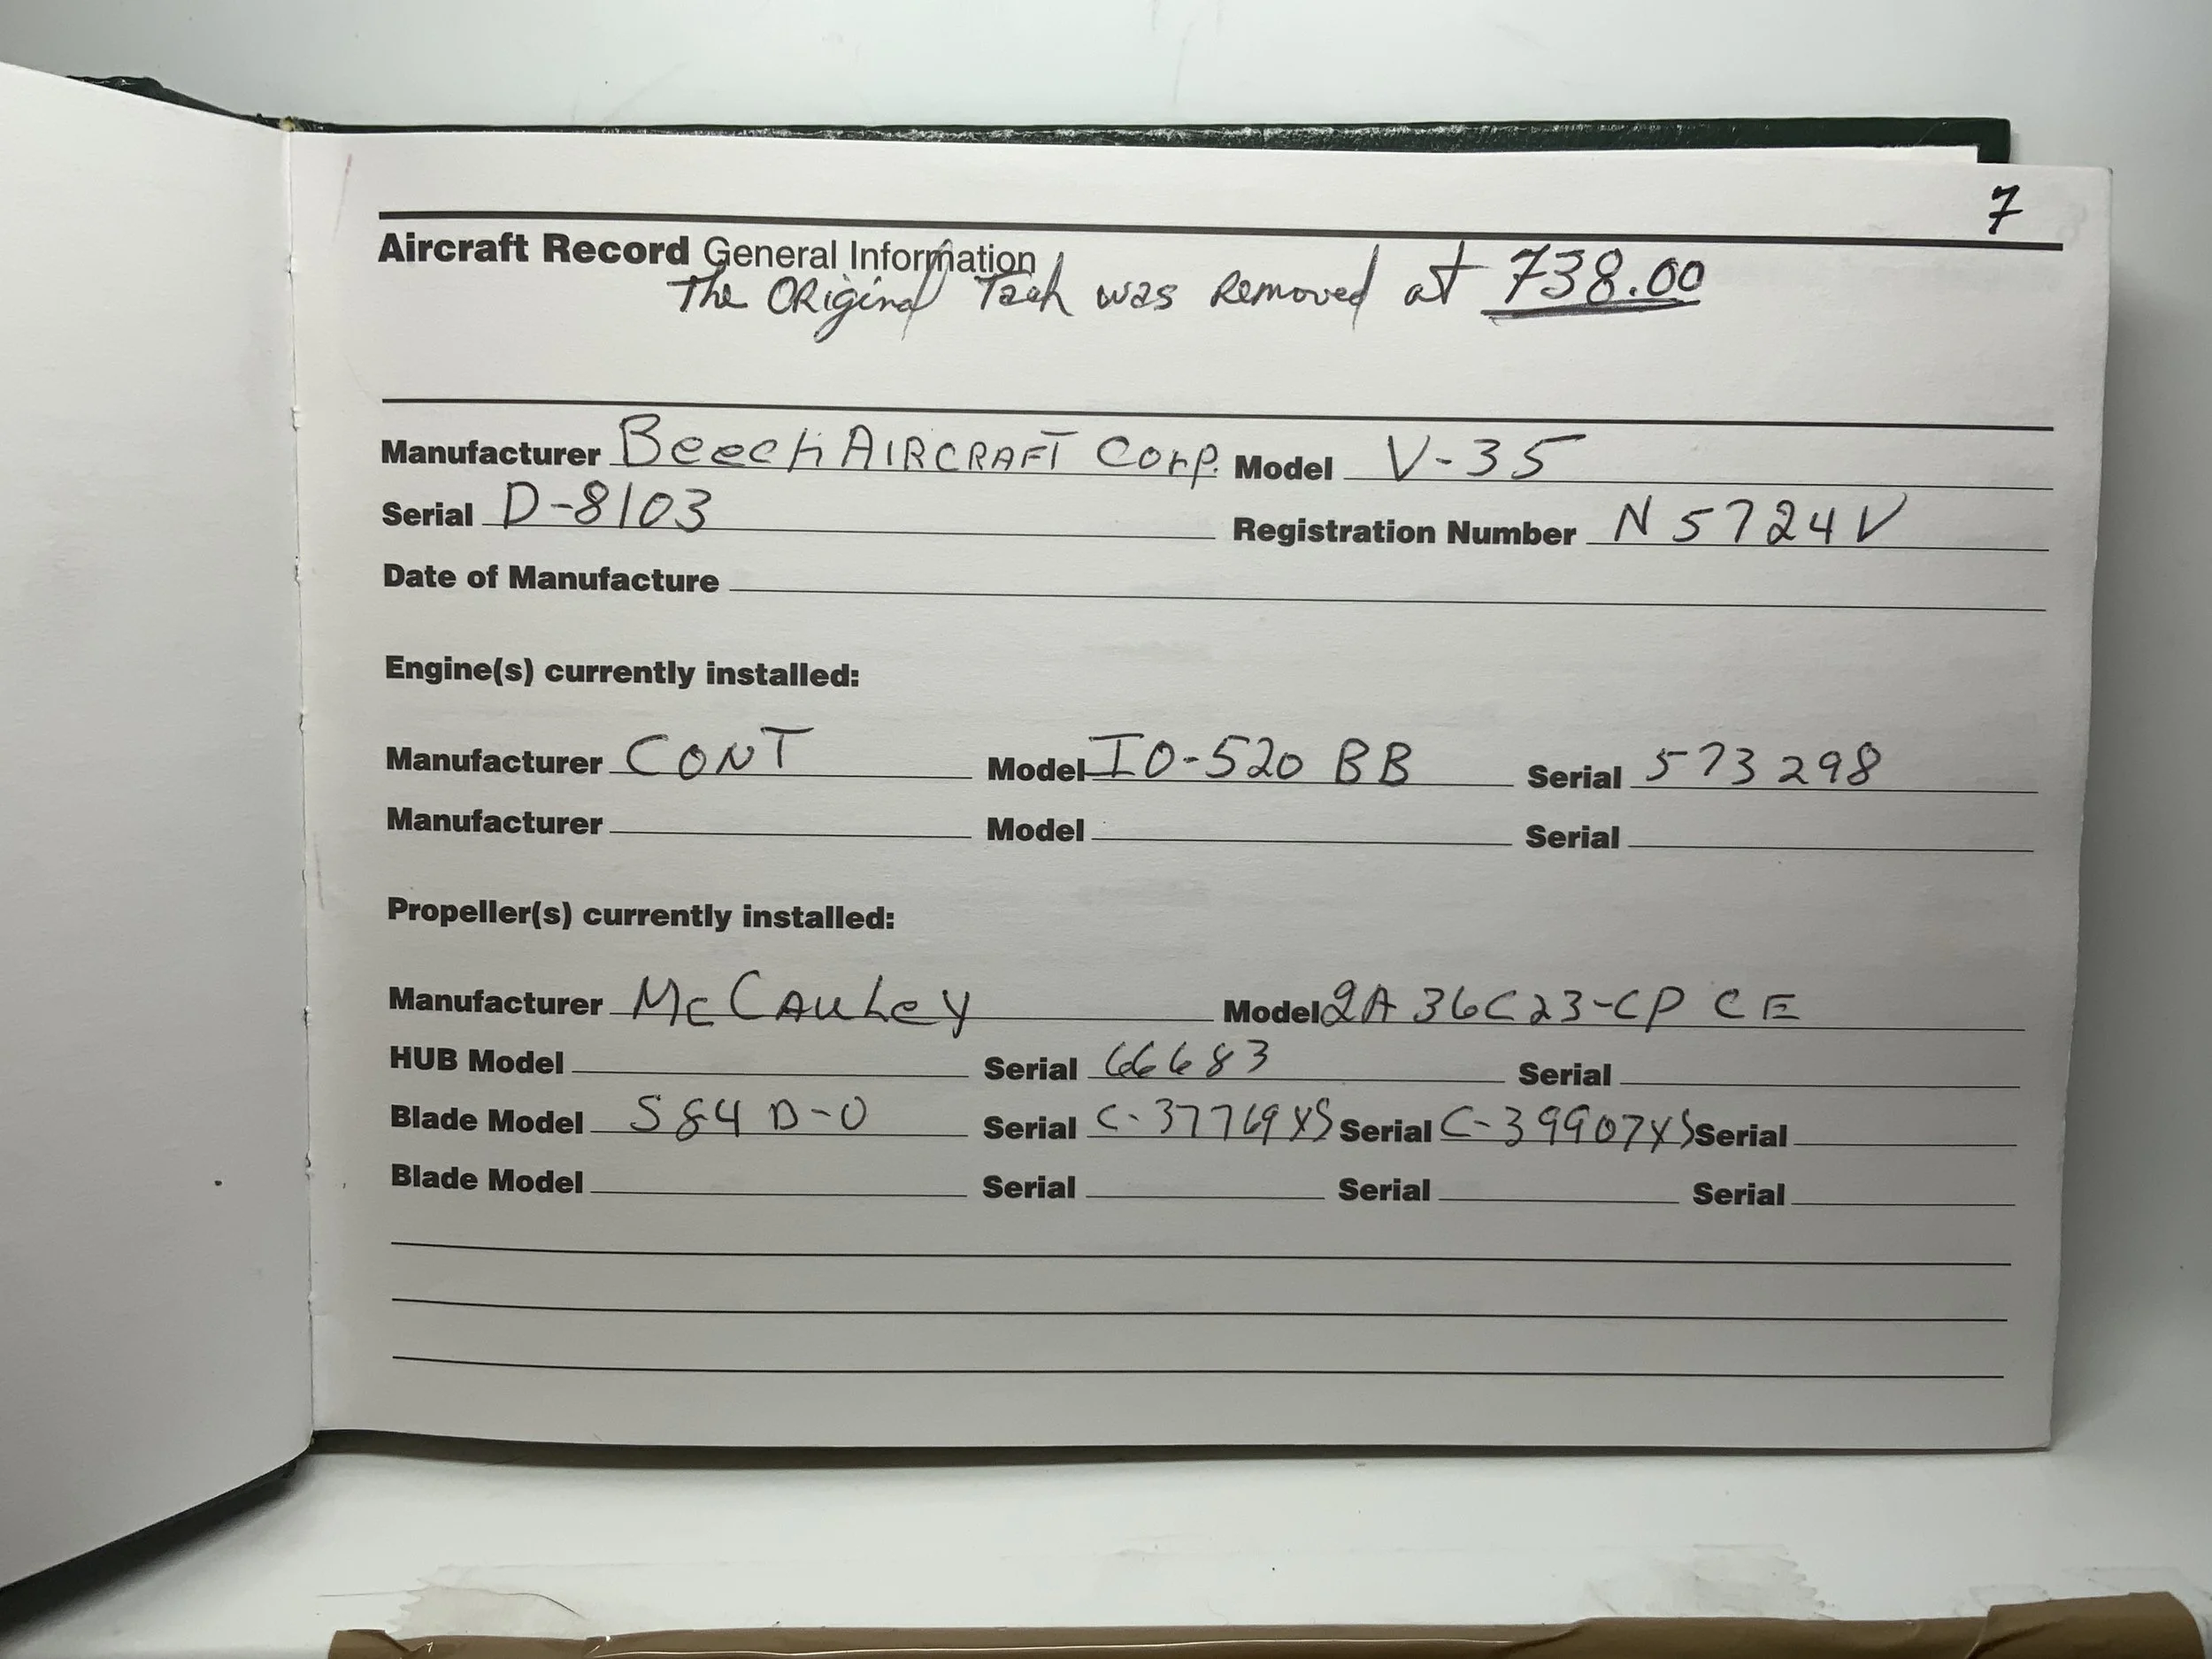 7
Aircraft Record General Information
The Original Tach was Removed at 738.00
Manufacturer Beech AIRCRAFT Corp. Model V-35
Serial D-8103 Registration Number N5724V
Date of Manufacture
Engine(s) currently installed:
Manufacturer CONT Model IO-520 BB Serial 573298
Manufacturer Model Serial
Propeller(s) currently installed:
Manufacturer McCauley Model 2A36C23-CP CE
HUB Model Serial 66683 Serial
Blade Model S84D-0 Serial C-37769YS Serial C-39907YS Serial
Blade Model Serial Serial Serial